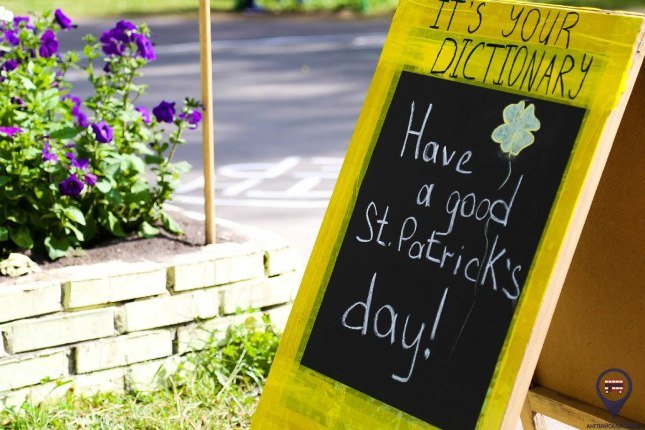 IT'S YOUR
DICTIONARY
Have
a good
St. Patrick's
day!